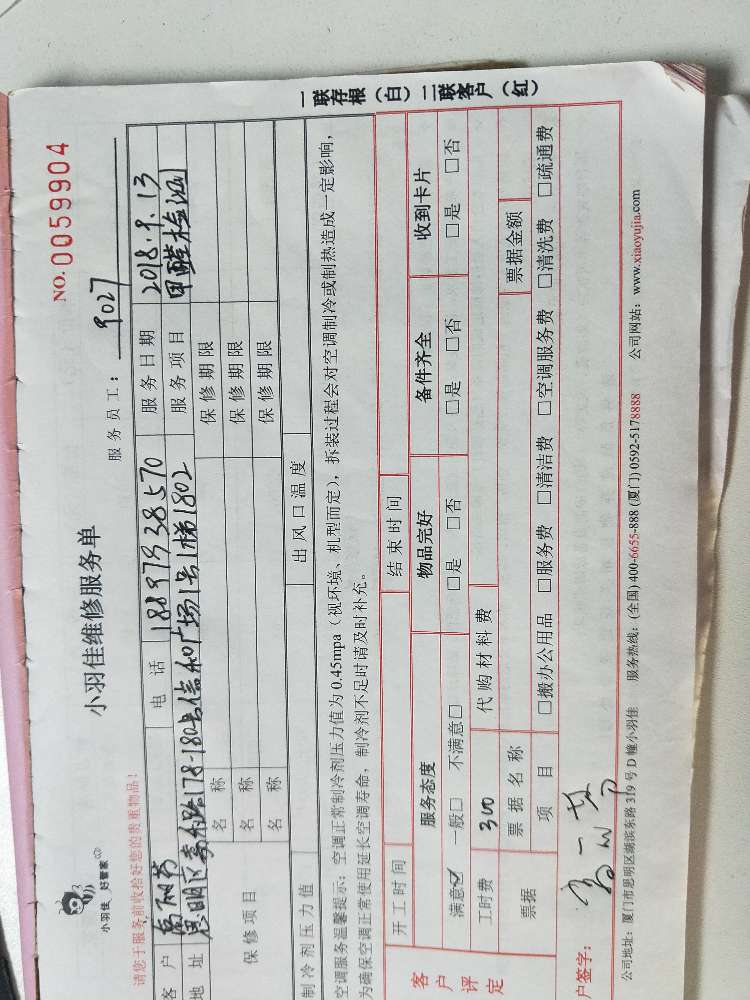 一联存根（白）二联客户（红）
小羽佳 好管家
小羽佳维修服务单
NO. 0059904
服务员工：9027
请您于服务前收拾好您的贵重物品！
客户 电话 18897938570 服务日期 2018.9.13
地址 思明区嘉禾路178-180号信和广场1号1梯1802 服务项目 甲醛检测
保修项目
名称 保修期限
名称 保修期限
名称 保修期限
制冷剂压力值 出风口温度
空调服务温馨提示：空调正常制冷剂压力值为0.45mpa（视环境、机型而定），拆装过程会对空调制冷或制热造成一定影响，
为确保空调正常使用延长空调寿命，制冷剂不足时请及时补充。
开工时间 结束时间
客户评定
服务态度 物品完好 备件齐全 收到卡片
满意☑ 一般□ 不满意□ □是 □否 □是 □否 □是 □否
工时费 300 代购材料费
票据 票据名称 票据金额
项目 □搬办公用品 □服务费 □清洁费 □空调服务费 □清洗费 □疏通费
户签字：
公司地址：厦门市思明区湖滨东路319号D幢小羽佳 服务热线：(全国) 400-6655-888 (厦门) 0592-5178888 公司网站：www.xiaoyujia.com